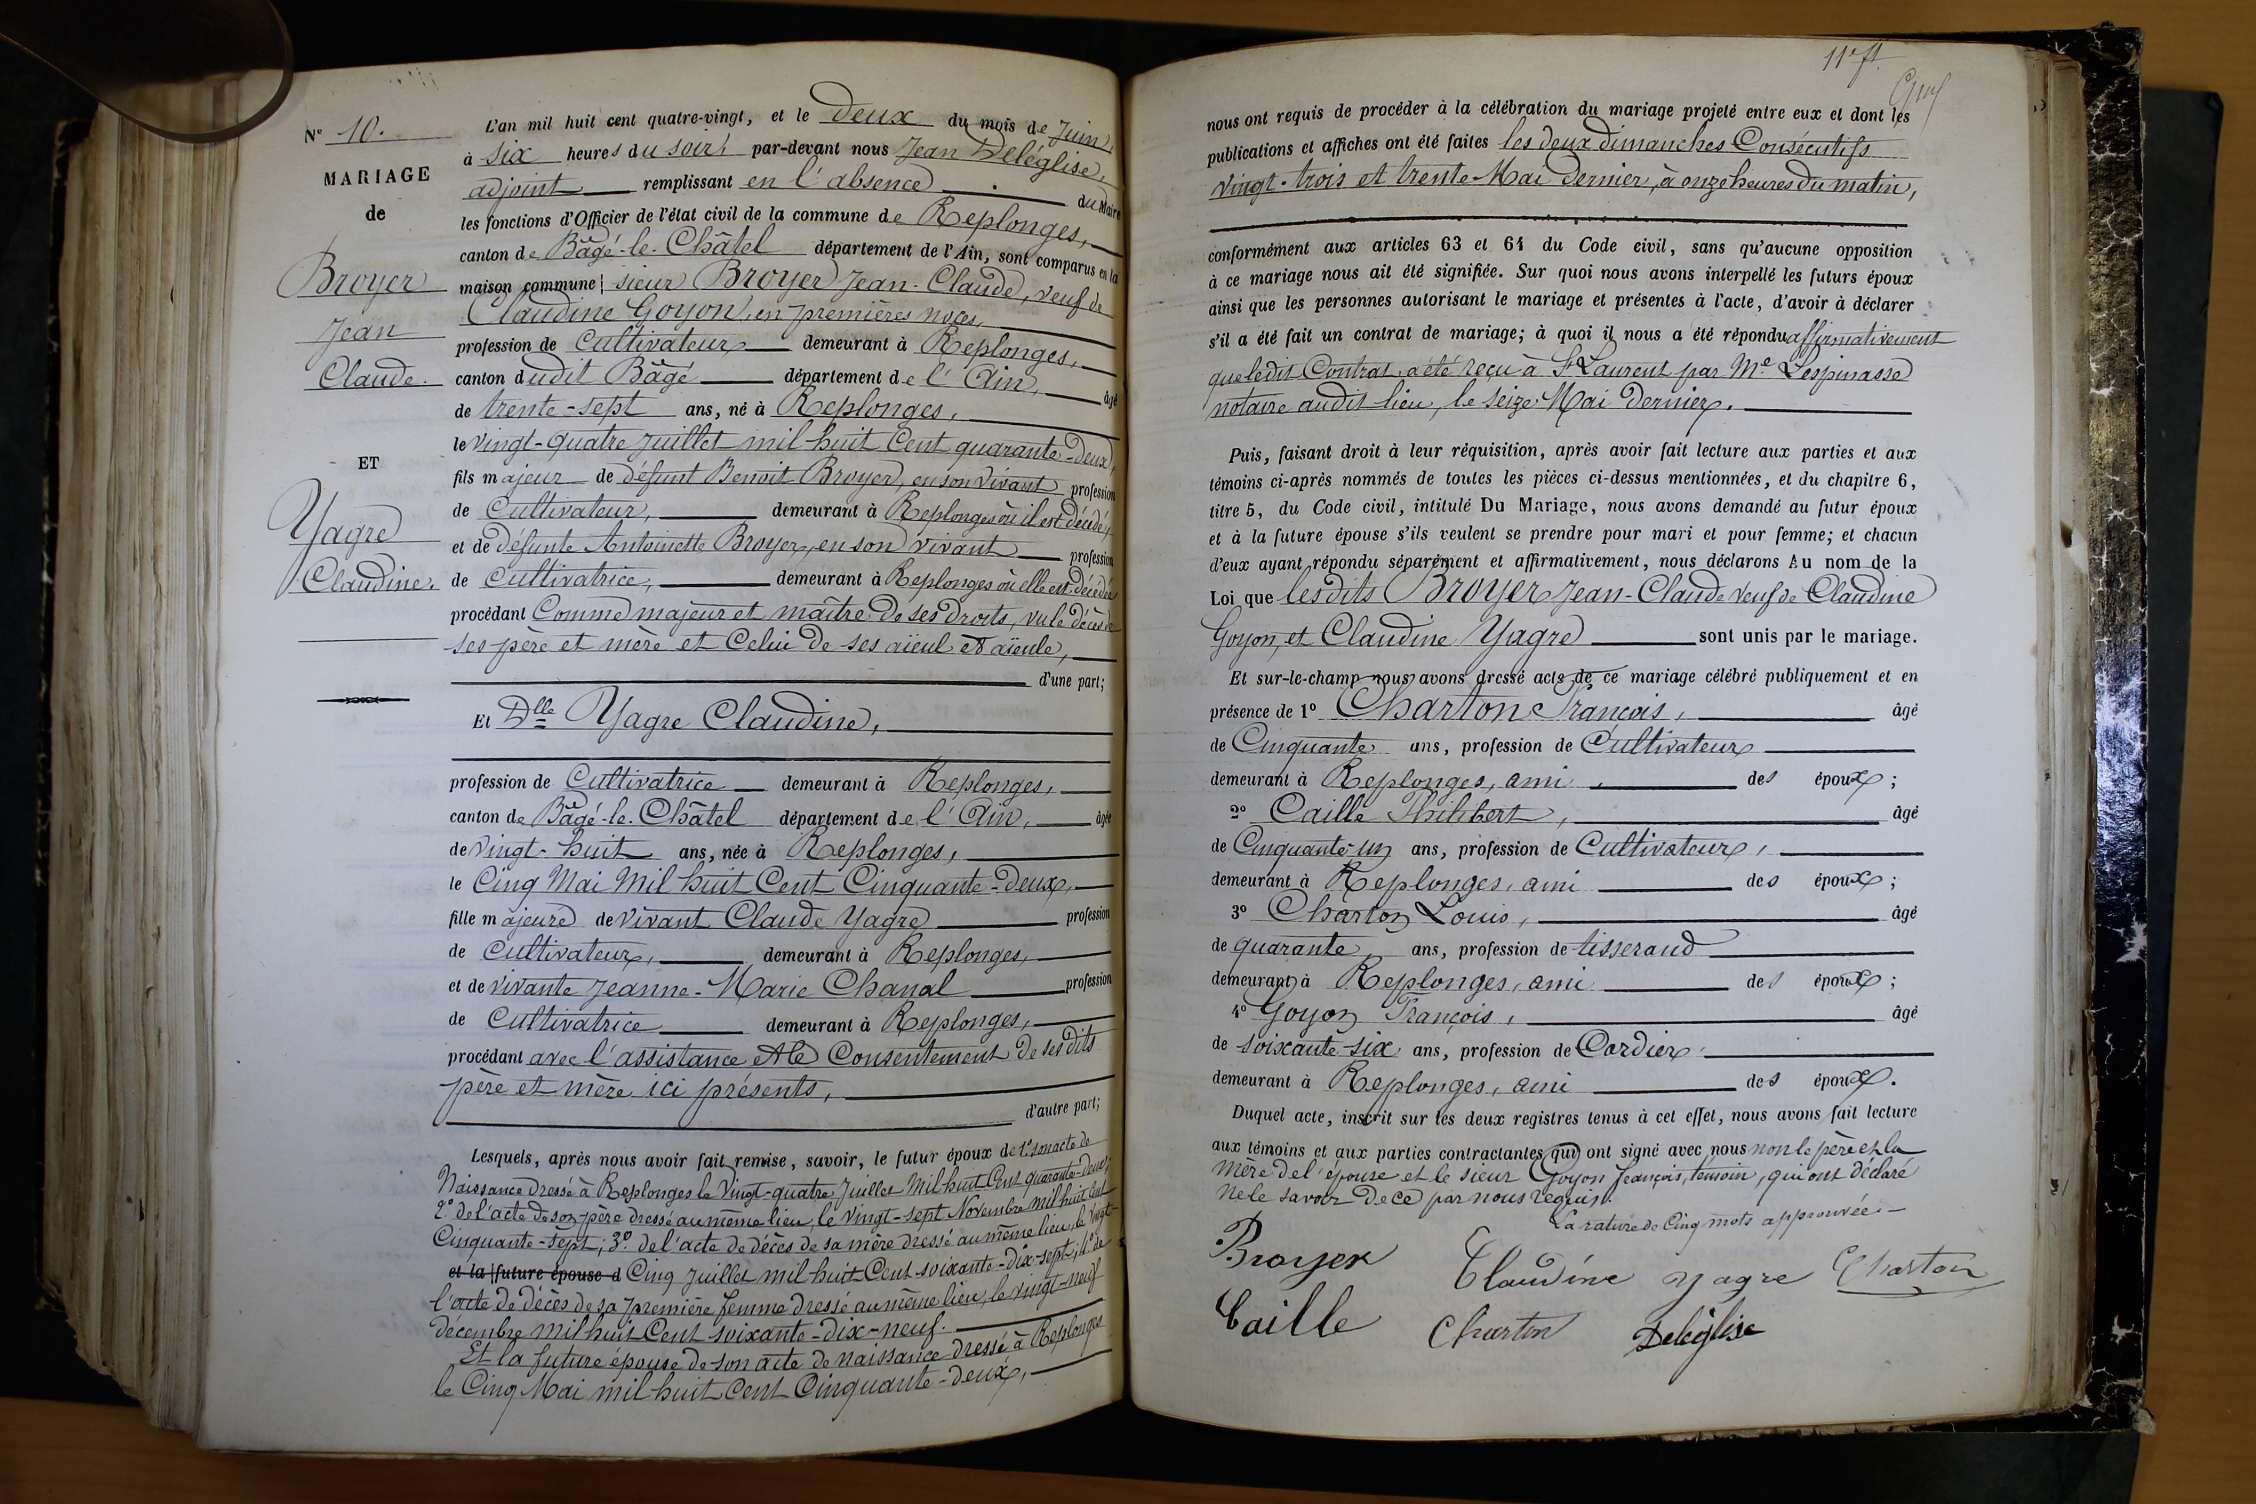 N° 10.
MARIAGE
de
Broyer
Jean
Claude.
ET
Yagre
Claudine.
L'an mil huit cent quatre-vingt, et le deux du mois de Juin,
à six heures du soir, par-devant nous Jean Deléglise,
adjoint remplissant en l'absence du Maire
les fonctions d'Officier de l'état civil de la commune de Replonges,
canton de Bâgé-le-Châtel département de l'Ain, sont comparus en la
maison commune sieur Broyer Jean-Claude, veuf de
Claudine Goyon, en premières noces,
profession de Cultivateur demeurant à Replonges,
canton dudit Bâgé département de l'Ain, âgé
de trente-sept ans, né à Replonges,
le vingt-quatre Juillet mil huit Cent quarante-deux,
fils majeur de défunt Benoit Broyer, en son vivant profession
de Cultivateur, demeurant à Replonges où il est décédé,
et de defunte Antoinette Broyer, en son vivant profession
de Cultivatrice, demeurant à Replonges où elle est décédée
procédant Comme majeur et maître de ses droits, vu le décès de
ses père et mère et Celui de ses aïeul et aïeule,
d'une part;
Et Dlle Yagre Claudine,
profession de Cultivatrice demeurant à Replonges,
canton de Bâgé-le-Châtel département de l'Ain, âgée
de Vingt-huit ans, née à Replonges,
le Cinq Mai Mil huit Cent Cinquante-Deux,
fille majeure de vivant Claude Yagre profession
de Cultivateur, demeurant à Replonges,
et de vivante Jeanne-Marie Chanal profession
de Cultivatrice demeurant à Replonges,
procédant avec l'assistance et le Consentement de ses dits
père et mère ici présents,
d'autre part;
Lesquels, après nous avoir fait remise, savoir, le futur époux de 1° son acte de
Naissance dressé à Replonges le Vingt-quatre Juillet Mil huit Cent quarante-deux;
2° de l'acte de son père dressé au même lieu, le vingt-sept Novembre mil huit Cent
Cinquante-sept; 3° de l'acte de décès de sa mère dressé au même lieu, le Vingt-
et la future épouse d Cinq Juillet mil huit Cent soixante-dix-sept; 4° de
l'acte de décès de sa première femme dressé au même lieu, le vingt-neuf
décembre mil huit Cent soixante-dix-neuf.
Et la future épouse de son acte de naissance dressé à Replonges
le Cinq Mai mil huit Cent Cinquante-deux,
11e ft
nous ont requis de procéder à la célébration du mariage projeté entre eux et dont les
publications et affiches ont été faites les deux dimanches Consécutifs
vingt-trois et trente Mai dernier, à onze heures du matin,
conformément aux articles 63 et 64 du Code civil, sans qu'aucune opposition
à ce mariage nous ait été signifiée. Sur quoi nous avons interpellé les futurs époux
ainsi que les personnes autorisant le mariage et présentes à l'acte, d'avoir à déclarer
s'il a été fait un contrat de mariage; à quoi il nous a été répondu affirmativement
que ledit Contrat a été reçu à St Laurent par Me Lespinasse
notaire audit lieu, le seize Mai dernier.
Puis, faisant droit à leur réquisition, après avoir fait lecture aux parties et aux
témoins ci-après nommés de toutes les pièces ci-dessus mentionnées, et du chapitre 6,
titre 5, du Code civil, intitulé Du Mariage, nous avons demandé au futur époux
et à la future épouse s'ils veulent se prendre pour mari et pour femme; et chacun
d'eux ayant répondu séparément et affirmativement, nous déclarons Au nom de la
Loi que lesdits Broyer Jean-Claude veuf de Claudine
Goyon, et Claudine Yagre sont unis par le mariage.
Et sur-le-champ nous avons dressé acte de ce mariage célébré publiquement et en
présence de 1° Charton François, âgé
de Cinquante ans, profession de Cultivateur
demeurant à Replonges, ami des époux;
2° Caille Philibert, âgé
de Cinquante-un ans, profession de Cultivateur,
demeurant à Replonges, ami des époux;
3° Charton Louis, âgé
de quarante ans, profession de tisserand
demeurant à Replonges, ami des époux;
4° Goyon François, âgé
de soixante-six ans, profession de Cordier
demeurant à Replonges, ami des époux.
Duquel acte, inscrit sur les deux registres tenus à cet effet, nous avons fait lecture
aux témoins et aux parties contractantes qui ont signé avec nous non le père et la
mère de l'épouse et le sieur Goyon François, témoin, qui ont déclaré
ne le savoir de ce par nous requis.
La rature de Cinq mots approuvée.
Broyer Claudine yagre Charton
Caille Charton Deléglise